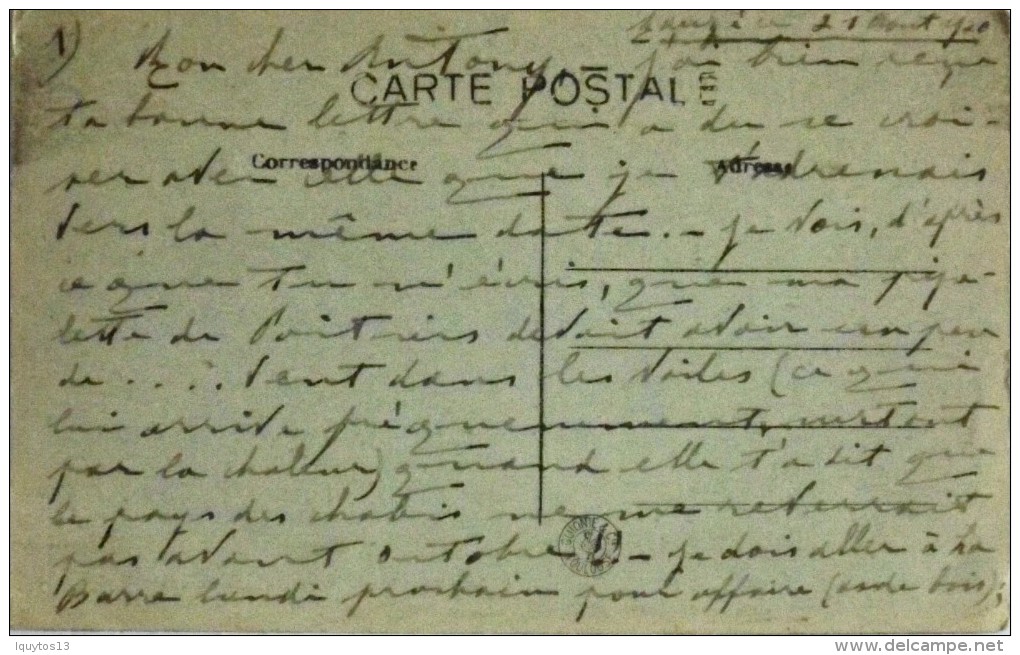 21 Août 1920
1)
Mon cher Antony, - j'ai bien reçu
CARTE POSTALE
ta bonne lettre qui a du se croi-
Correspondance
Adresse
ser avec celle que je t'adressais
vers la même date. - Je vois, d'après
ce que tu m'écris, que ma
lette de Poitiers devait avoir un peu
de ..... vent dans les voiles (ce qui
lui arrive fréquemment, surtout
par la chaleur) quand elle t'a dit que
le pays des chabis ne me reverrait
pas avant octobre. - Je dois aller à La
Barre lundi prochain pour affaire ( de bois);
lquytos13
www.delcampe.net